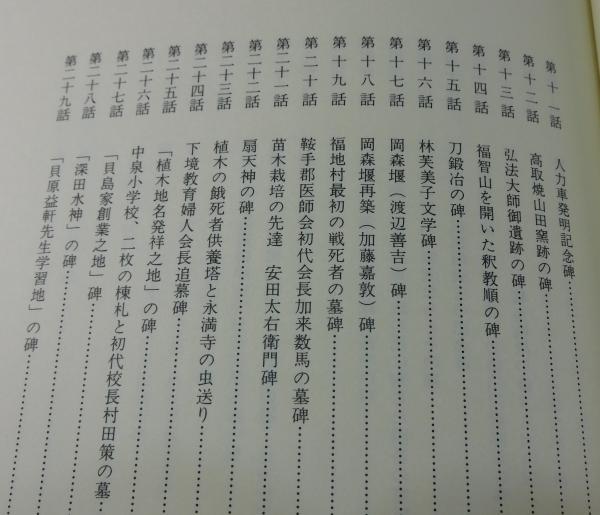 第十一話 人力車発明記念碑
第十二話 高取焼山田窯跡の碑
第十三話 弘法大師御遺跡の碑
第十四話 福智山を開いた釈教順の碑
第十五話 刀鍛冶の碑
第十六話 林芙美子文学碑
第十七話 岡森堰（渡辺善吉）碑
第十八話 岡森堰再築（加藤嘉敦）碑
第十九話 福地村最初の戦死者の墓碑
第二十話 鞍手郡医師会初代会長加来数馬の墓碑
第二十一話 苗木栽培の先達 安田太右衛門碑
第二十二話 扇天神の碑
第二十三話 植木の餓死者供養塔と永満寺の虫送り
第二十四話 下境教育婦人会長追慕碑
第二十五話 「植木地名発祥之地」の碑
第二十六話 中泉小学校、二枚の棟札と初代校長村田策の墓
第二十七話 「貝島家創業之地」碑
第二十八話 「深田水神」の碑
第二十九話 「貝原益軒先生学習地」の碑